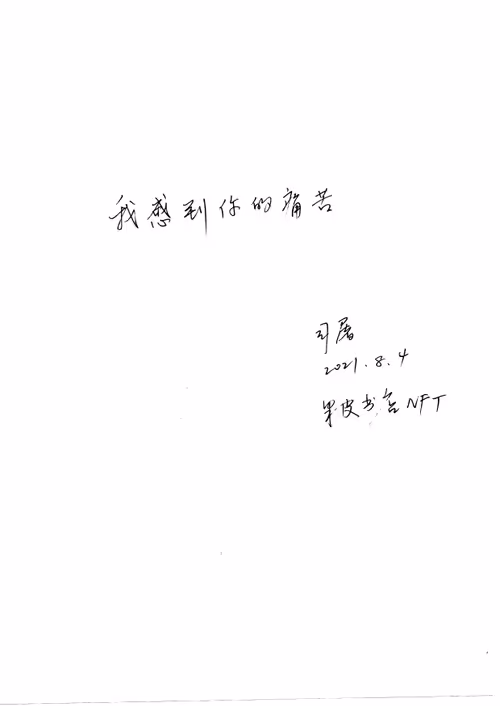 我感到你的痛苦
司屠
2021.8.4
果皮书宫NFT